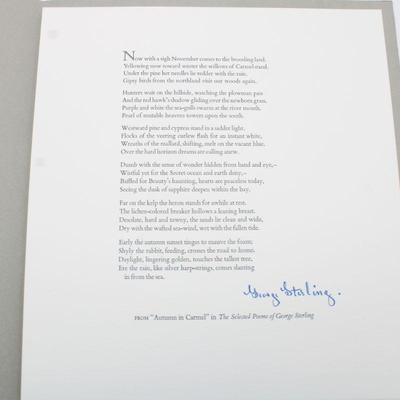 Now with a sigh November comes to the brooding land.
Yellowing now toward winter the willows of Carmel stand.
Under the pine her needles lie redder with the rain.
Gipsy birds from the northland visit our woods again.
Hunters wait on the hillside, watching the plowman pass
And the red hawk's shadow gliding over the newborn grass.
Purple and white the sea-gulls swarm at the river mouth,
Pearl of mutable heavens towers upon the south.
Westward pine and cypress stand in a sadder light.
Flocks of the veering curlew flash for an instant white,
Wreaths of the mallard, shifting, melt on the vacant blue.
Over the hard horizon dreams are calling anew.
Dumb with the sense of wonder hidden from hand and eye,–
Wistful yet for the Secret ocean and earth deny,–
Baffled for Beauty's haunting, hearts are peaceless today,
Seeing the dusk of sapphire deepen within the bay.
Far on the kelp the heron stands for awhile at rest.
The lichen-colored breaker hollows a leaning breast.
Desolate, hard and tawny, the sands lie clean and wide,
Dry with the wafted sea-wind, wet with the fallen tide.
Early the autumn sunset tinges to mauve the foam;
Shyly the rabbit, feeding, crosses the road to home.
Daylight, lingering golden, touches the tallest tree,
Ere the rain, like silver harp-strings, comes slanting
in from the sea.
George Sterling.
FROM "Autumn in Carmel" in The Selected Poems of George Sterling